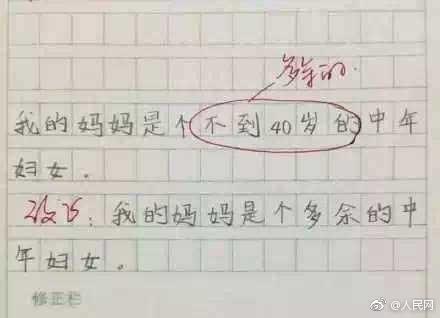 多余的.
我的妈妈是个不到40岁的中年
妇女。
改正：我的妈妈是个多余的中
年妇女。
修正栏
@人民网